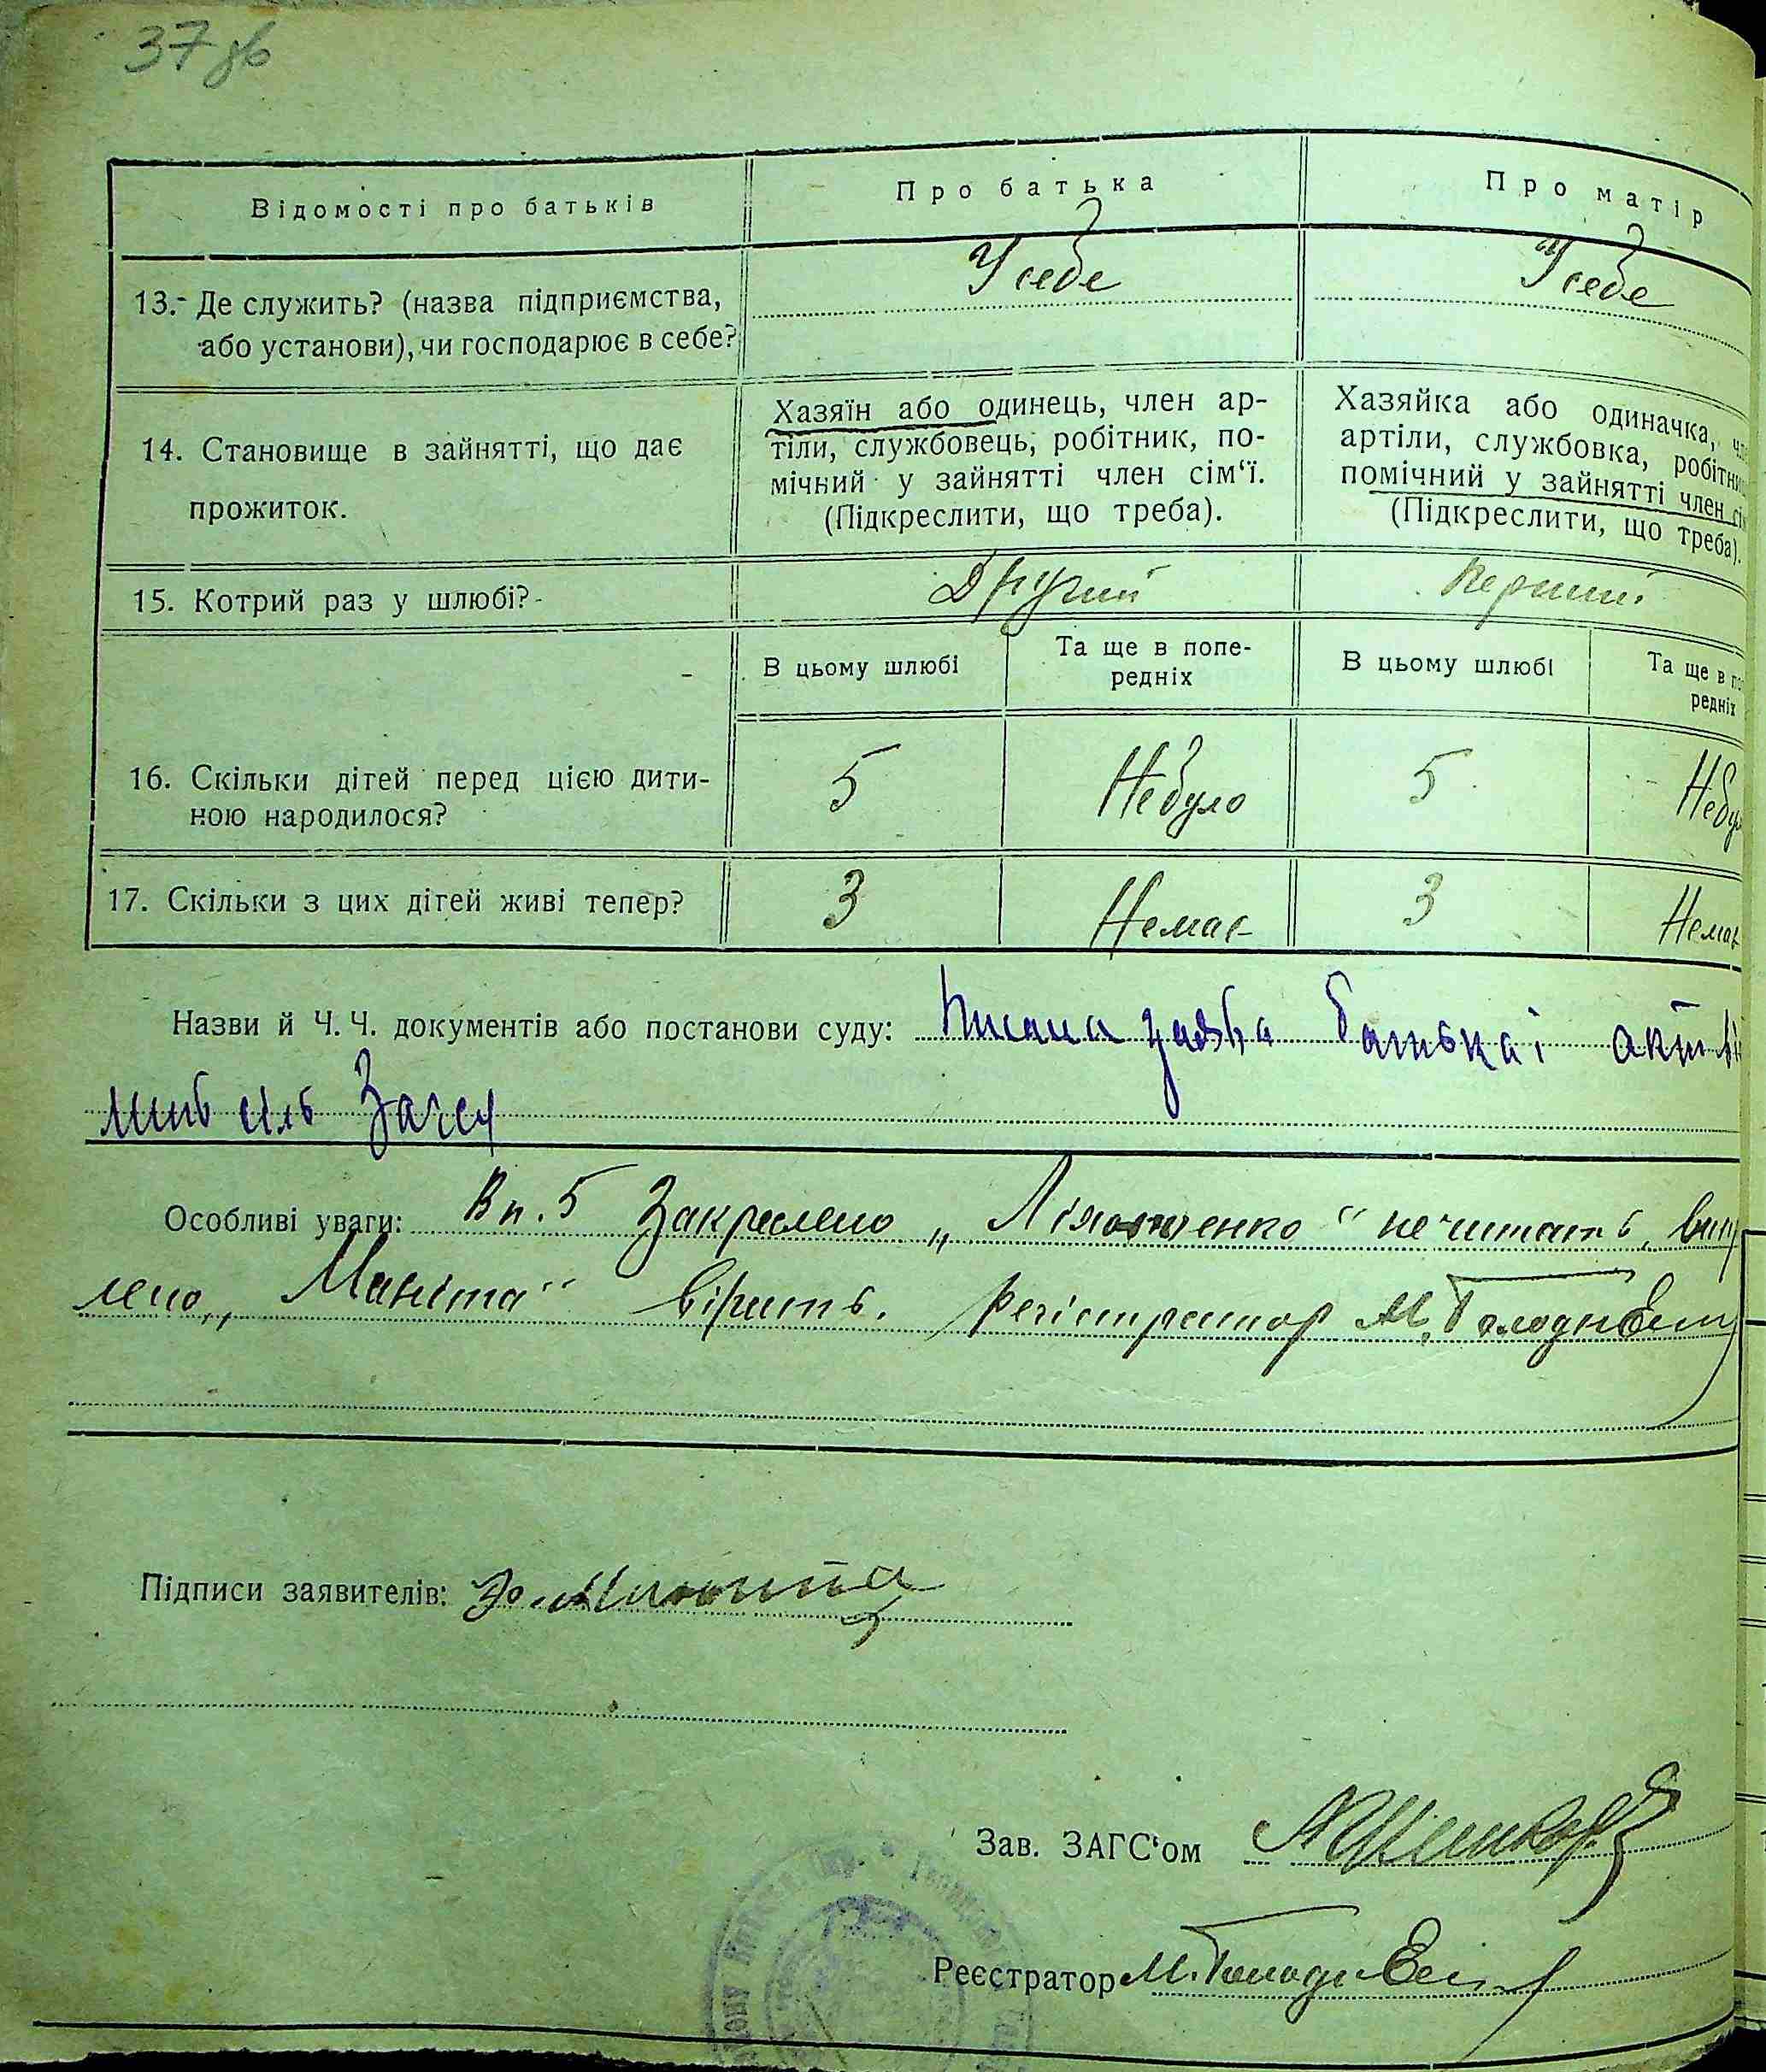 37 зв
Відомості про батьків
Про батька
Про матір
13. Де служить? (назва підприємства,
або установи), чи господарює в себе?
У себе
У себе
14. Становище в зайнятті, що дає
прожиток.
Хазяїн або одинець, член ар-
тіли, службовець, робітник, по-
мічний у зайнятті член сім‘ї.
(Підкреслити, що треба).
Хазяйка або одиначка,
артіли, службовка,
помічний у зайнятті член
(Підкреслити, що треба).
15. Котрий раз у шлюбі?
Другий
Перший
В цьому шлюбі
Та ще в попе-
редніх
В цьому шлюбі
Та ще в
редніх
16. Скільки дітей перед цією дити-
ною народилося?
5
Небуло
5
17. Скільки з цих дітей живі тепер?
3
Немає
3
Немає
Назви й Ч. Ч. документів або постанови суду: заява батька і акт
Загсу
Особливі уваги: В п. 5 Закреслено „ " не читать,
лено „Маніта" вірить. Регістратор М.
Підписи заявителів:
Зав. ЗАГС‘ом
Реєстратор М.